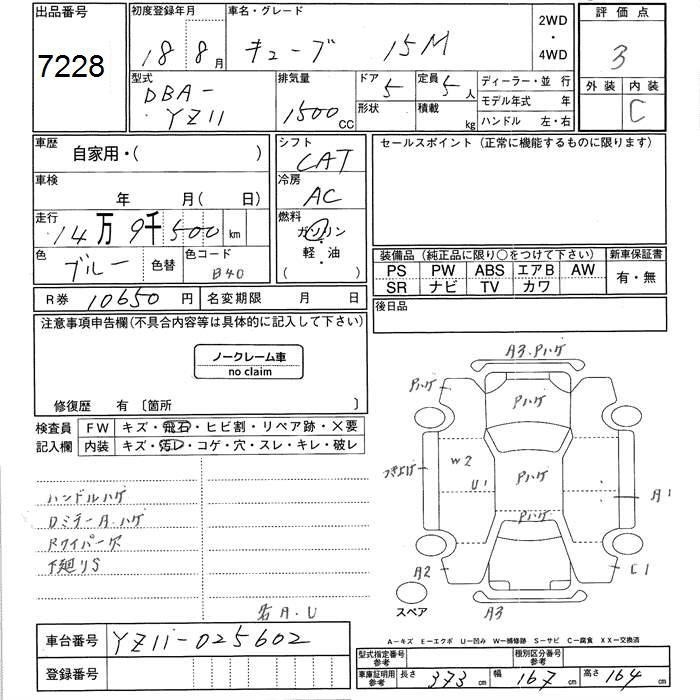 出品番号 初度登録年月 車名・グレード 2WD ・ 4WD 評価点
7228 18年 8月 キューブ 15M 3
型式 排気量 ドア 定員 ディーラー・並 行 外装 内装
DBA- YZ11 1500 CC 5 形状 5人 積載 kg モデル年式 年 C
ハンドル 左・右
車歴 自家用・( ) シフト CAT セールスポイント (正常に機能するものに限ります)
車検 年 月( 日) 冷房 AC
走行 14万9千500 km 燃料 ガソリン・軽・油 ( )
色 ブルー 色替 色コード B40
装備品 (純正品に限り○をつけて下さい) 新車保証書
PS PW ABS エアB AW 有・無
SR ナビ TV カワ
R券 10650 円 名変期限 月 日 後日品
注意事項申告欄(不具合内容等は具体的に記入して下さい)
ノークレーム車
no claim
修復歴 有 〔箇所 〕
検査員 FW キズ・飛石・ヒビ割・リペア跡・×要
記入欄 内装 キズ・汚レ・コゲ・穴・スレ・キレ・破レ
ハンドルハゲ
Dミラー A.ハゲ
Rワイパー欠
下廻りS
若A.U
A3.Pハゲ
Pハゲ
Pハゲ
W2
U1
Pハゲ
A1
Pハゲ
A2
C1
スペア
A3
車台番号 YZ11-025602
登録番号
A-キズ E-エクボ U-凹み W-補修跡 S-サビ C-腐食 XX-交換済
型式指定番号 参考 種別区分番号 参考
車庫証明用 参考 長さ 373 cm 幅 167 cm 高さ 164 cm